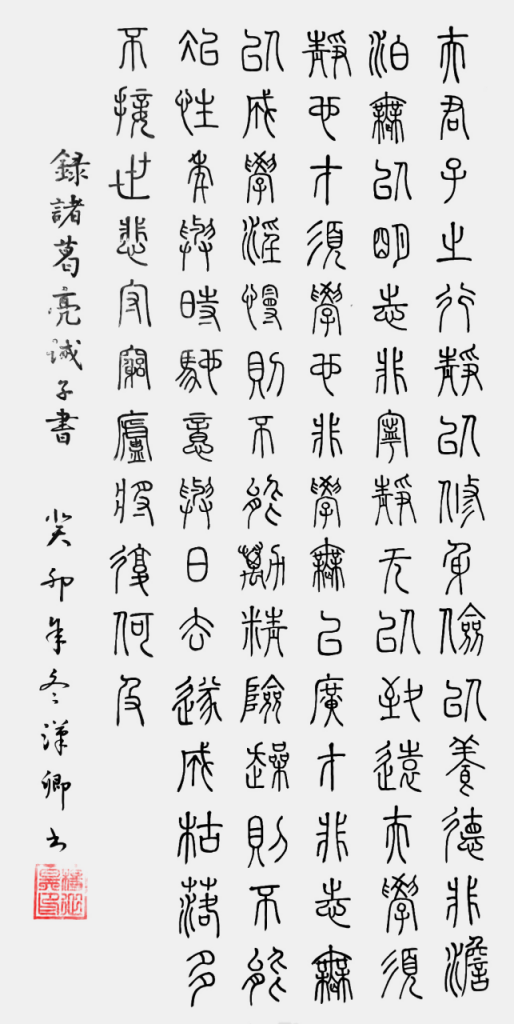 夫君子之行靜以修身儉以養德非澹
泊無以明志非寧靜无以致遠夫學須
靜也才須學也非學無以廣才非志無
以成學淫慢則不能勱精險趮則不能
冶性年與時馳意與日去遂成枯落多
不接世悲守窮廬將復何及
錄諸葛亮誡子書 癸卯年冬漢卿书